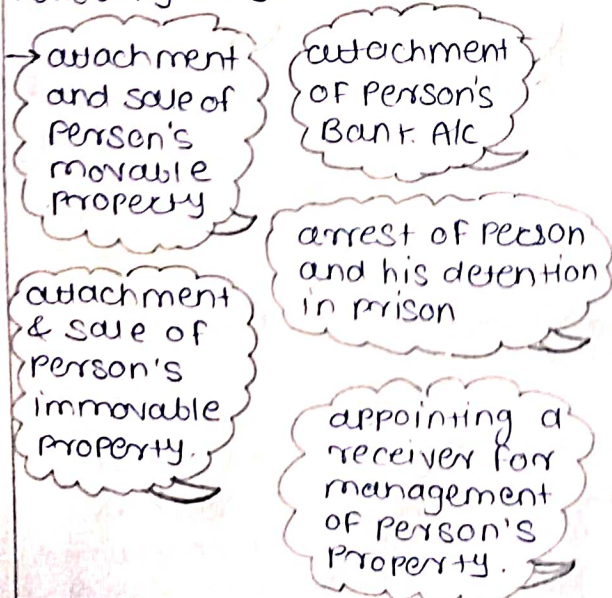 → attachment
and sale of
Person's
movable
Property
attachment
OF Person's
Bank A/c
arrest of Person
and his detention
in prison
attachment
& sale of
Person's
immovable
Property.
appointing a
receiver for
management
OF Person's
Property.